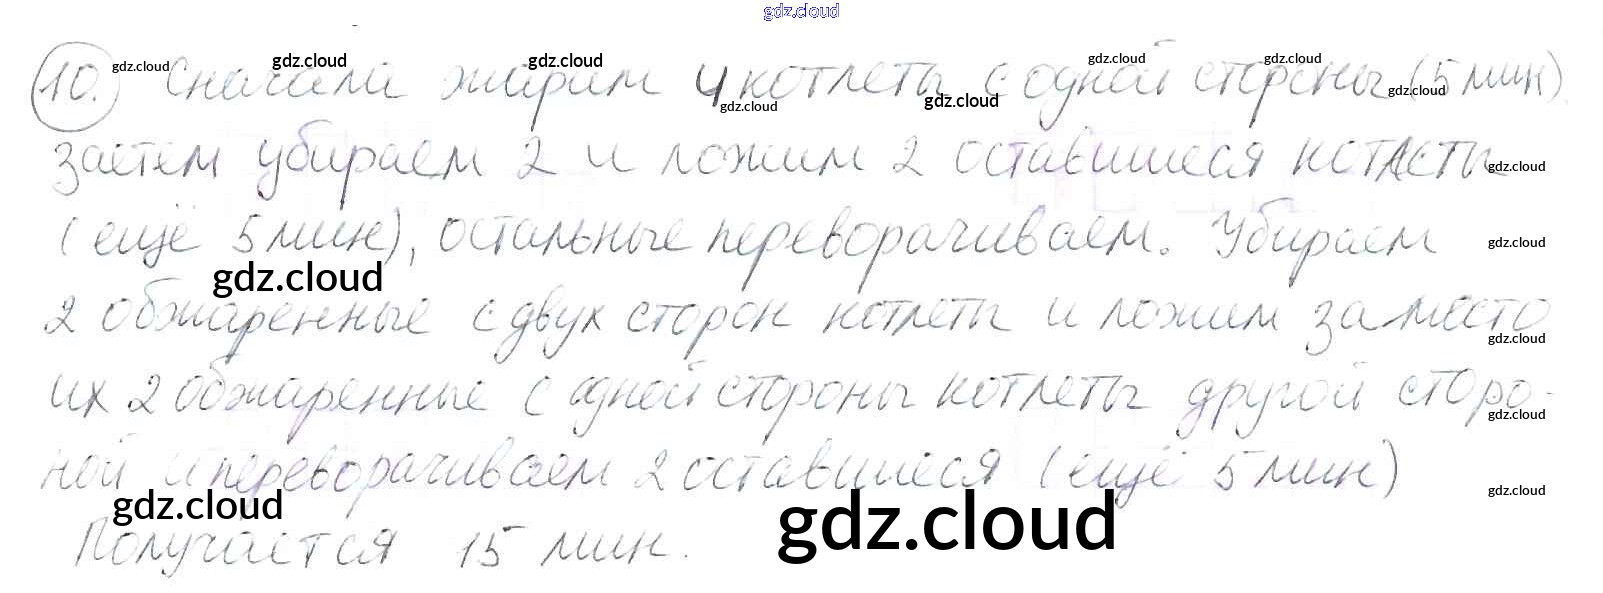 gdz.cloud
10. Сначала жарим 4 котлеты с одной стороны (5 мин)
gdz.cloud gdz.cloud gdz.cloud gdz.cloud gdz.cloud gdz.cloud gdz.cloud gdz.cloud
заетем убираем 2 и ложим 2 оставшиеся котлеты
gdz.cloud
(ещё 5 мин), остальные переворачиваем. Убираем
gdz.cloud
gdz.cloud
2 обжаренные с двух сторон котлеты и ложим заместо
gdz.cloud
их 2 обжаренные с одной стороны котлеты другой сторо-
gdz.cloud
ной и переворачиваем 2 оставшиеся (ещё 5 мин)
gdz.cloud
gdz.cloud
gdz.cloud
Получается 15 мин.